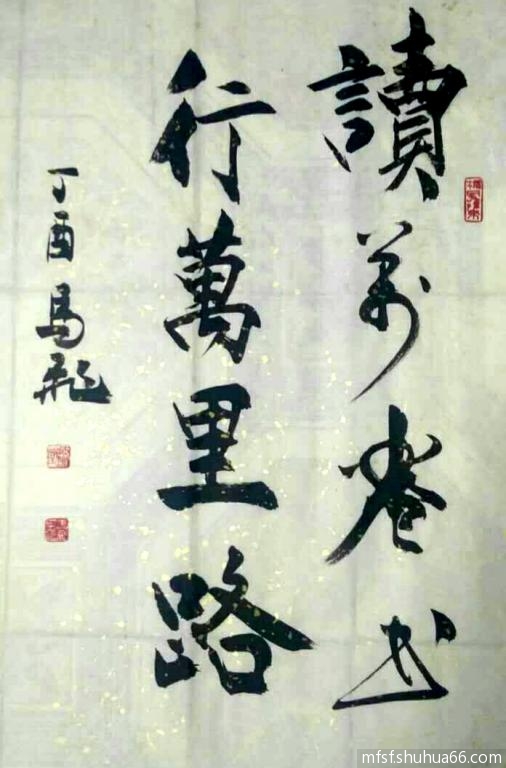 讀萬卷书
行萬里路
丁酉馬飛
mfsf.shuhua66.com